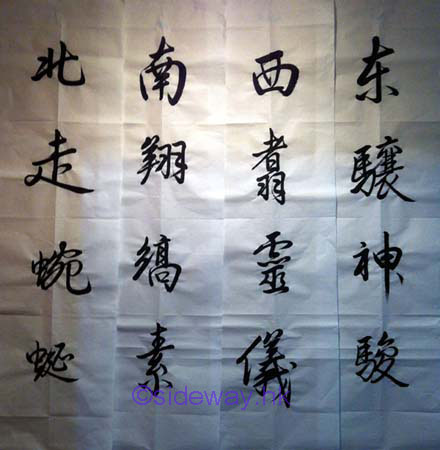 东骧神骏
西翥靈儀
南翔縞素
北走蜿蜒
©sideway.hk